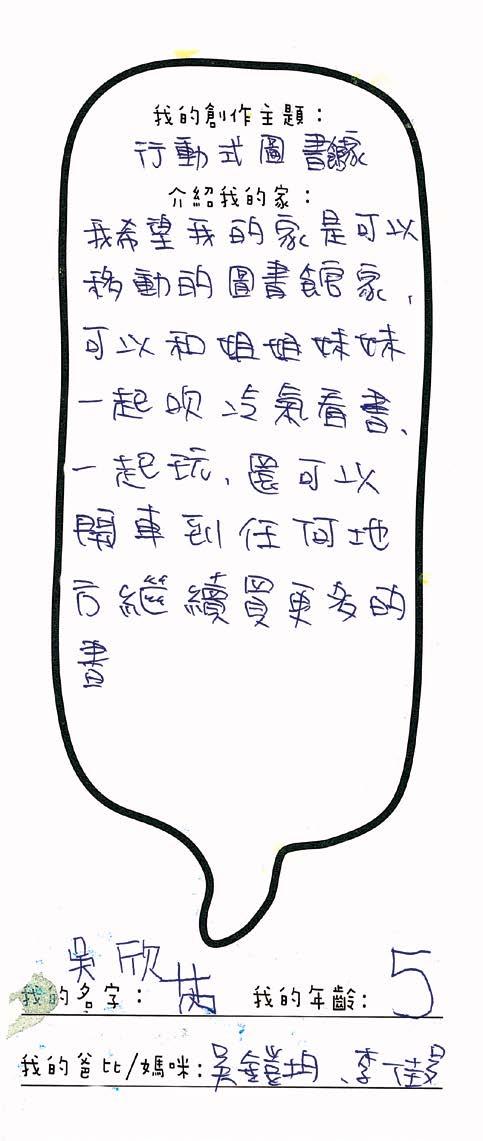 我的創作主題：
行動式圖書館家
介紹我的家：
我希望我的家是可以
移動的圖書館家，
可以和姐姐妹妹
一起吹冷氣看書、
一起玩，還可以
開車到任何地
方繼續買更多的
書
吳欣芮
我的名字：
我的年齡：5
我的爸比/媽咪：吳鎧均、李佳